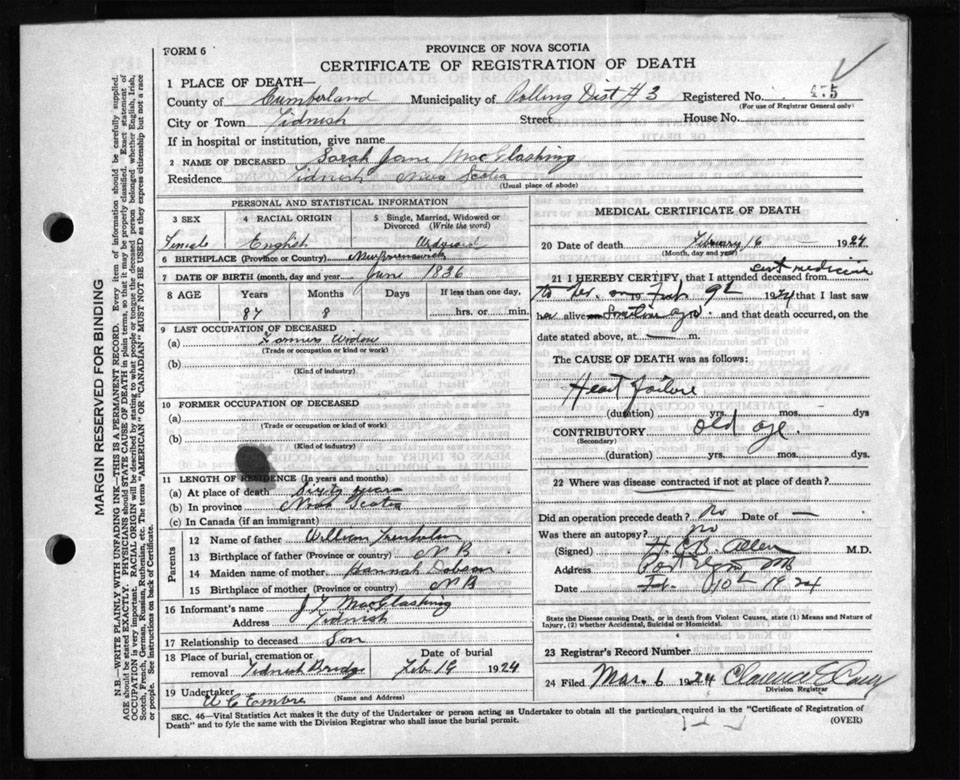 FORM 6
PROVINCE OF NOVA SCOTIA
CERTIFICATE OF REGISTRATION OF DEATH
1 PLACE OF DEATH—
County of Cumberland Municipality of Polling Dist # 3 Registered No.
(For use of Registrar General only)
City or Town Tidnish Street House No.
If in hospital or institution, give name
2 NAME OF DECEASED Sarah Jane MacGlashing
Residence Tidnish Nova Scotia
(Usual place of abode)
PERSONAL AND STATISTICAL INFORMATION
3 SEX 4 RACIAL ORIGIN 5 Single, Married, Widowed or Divorced (Write the word)
Female English Widowed
6 BIRTHPLACE (Province or Country) New Brunswick
7 DATE OF BIRTH (month, day and year) June 1836
8 AGE Years Months Days If less than one day,
87 8 hrs. or min.
9 LAST OCCUPATION OF DECEASED
(a) Farmers Widow
(Trade or occupation or kind or work)
(b)
(Kind of industry)
10 FORMER OCCUPATION OF DECEASED
(a)
(Trade or occupation or kind of work)
(b)
(Kind of industry)
11 LENGTH OF RESIDENCE (In years and months)
(a) At place of death Sixty years
(b) In province Nova Scotia
(c) In Canada (if an immigrant)
Parents
12 Name of father William Trenholm
13 Birthplace of father (Province or country) N B
14 Maiden name of mother Hannah Dobson
15 Birthplace of mother (Province or country) N B
16 Informant's name MacGlashing
Address Tidnish
17 Relationship to deceased Son
18 Place of burial, cremation or removal Tidnish Bridge Date of burial Feb 19 1924
19 Undertaker
(Name and Address)
MEDICAL CERTIFICATE OF DEATH
20 Date of death February 16 1924
(Month, day and year)
21 I HEREBY CERTIFY, that I attended deceased from sent medicine
to her on Feb 9th 1924 that I last saw
her alive and that death occurred, on the
date stated above, at m.
The CAUSE OF DEATH was as follows:
Heart failure
(duration) yrs. mos. dys
CONTRIBUTORY old age
(Secondary)
(duration) yrs. mos. dys.
22 Where was disease contracted if not at place of death?
Did an operation precede death? No Date of —
Was there an autopsy? no
(Signed) Allen M.D.
Address Port Elgin NB
Date Feb. 1924
State the Disease causing Death, or in Death from Violent Causes, state (1) Means and Nature of Injury, (2) whether Accidental, Suicidal or Homicidal.
23 Registrar's Record Number
24 Filed Mar. 6 1924 Clarence
Division Registrar
SEC. 46—Vital Statistics Act makes it the duty of the Undertaker or person acting as Undertaker to obtain all the particulars required in the "Certificate of Registration of
Death" and to fyle the same with the Division Registrar who shall issue the burial permit.
(OVER)
MARGIN RESERVED FOR BINDING
N.B.—WRITE PLAINLY WITH UNFADING INK—THIS IS A PERMANENT RECORD. Every item of information should be carefully supplied.
AGE should be stated EXACTLY. PHYSICIANS should STATE CAUSE OF DEATH in plain terms, so that it may be properly classified. Exact statement of
OCCUPATION is very important. RACIAL ORIGIN will be described by stating to what people or tongue the deceased person belonged whether English, Irish,
Scotch, French, German, Russian, Ruthenian, etc. The terms "AMERICAN" OR "CANADIAN" MUST NOT BE USED as they express citizenship but not a race
or people. See instructions on back of Certificate.